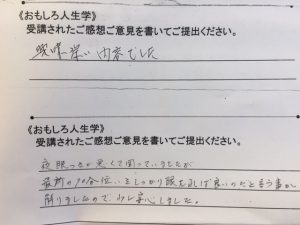 《おもしろ人生学》
受講されたご感想ご意見を書いてご提出ください。
興味深い内容でした
《おもしろ人生学》
受講されたご感想ご意見を書いてご提出ください。
夜眠つきが悪くて困っていましたが
最初の90分位いをしっかり眠れれば良いのだと言う事が
解りましたので、少し安心しました。